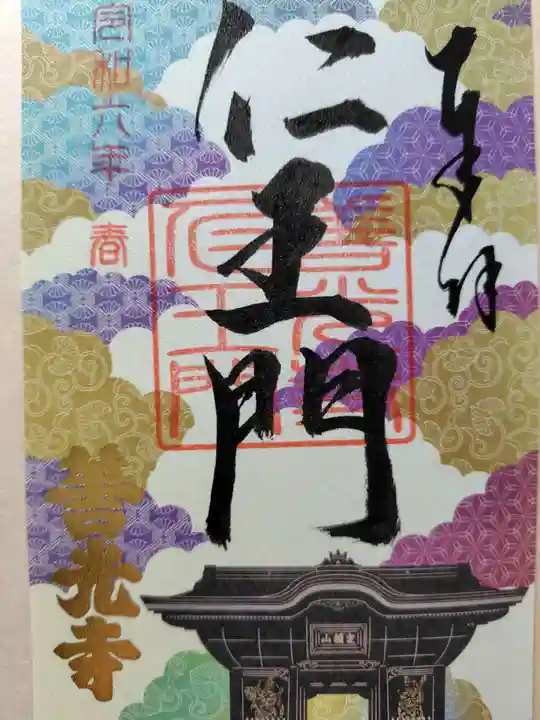 奉拝
仁王門
令和六年 春
善光寺
定額山